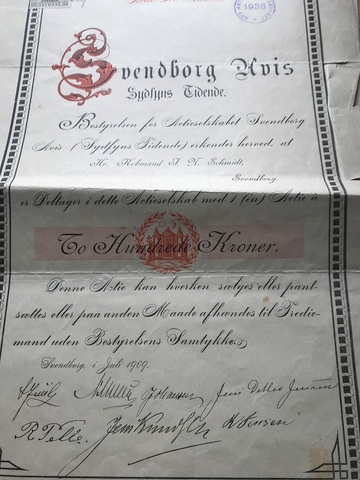 1938
Svendborg Avis
Sydfyns Tidende.
Bestyrelsen for Actieselskabet Svendborg
Avis (Sydfyns Tidende) erkender herved, at
Hr. Købmand J. N. Schmidt,
Svendborg
er Deltager i dette Actieselskab med 1 (en) Actie à
To Hundrede Kroner.
Denne Actie kan hverken sælges eller pant-
sættes eller paa anden Maade afhændes til Tredie-
mand uden Bestyrelsens Samtykke.
Svendborg, i Juli 1909.
Jens Ditlev
R Pelle. Jens Knudsen